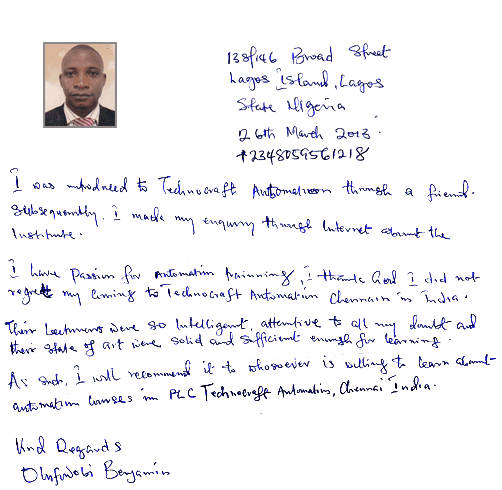 138/146 Broad Street
Lagos Island, Lagos
State Nigeria
26th March 2013.
+2348059561218
I was introduced to Technocraft Automation through a friend.
Subsequently, I made my enquiry through Internet about the
Institute.
I have Passion for Automation Trainning, I thank God I did not
regret my coming to Technocraft Automation Chennai in India.
Their Lecturers were so Intelligent, attentive to all my doubt and
their state of art were solid and sufficient enough for learning.
As such, I will recommend it to whosoever is willing to learn about
automation courses in PLC Technocraft Automation, Chennai India.
Kind Regards
Olufowobi Benjamin